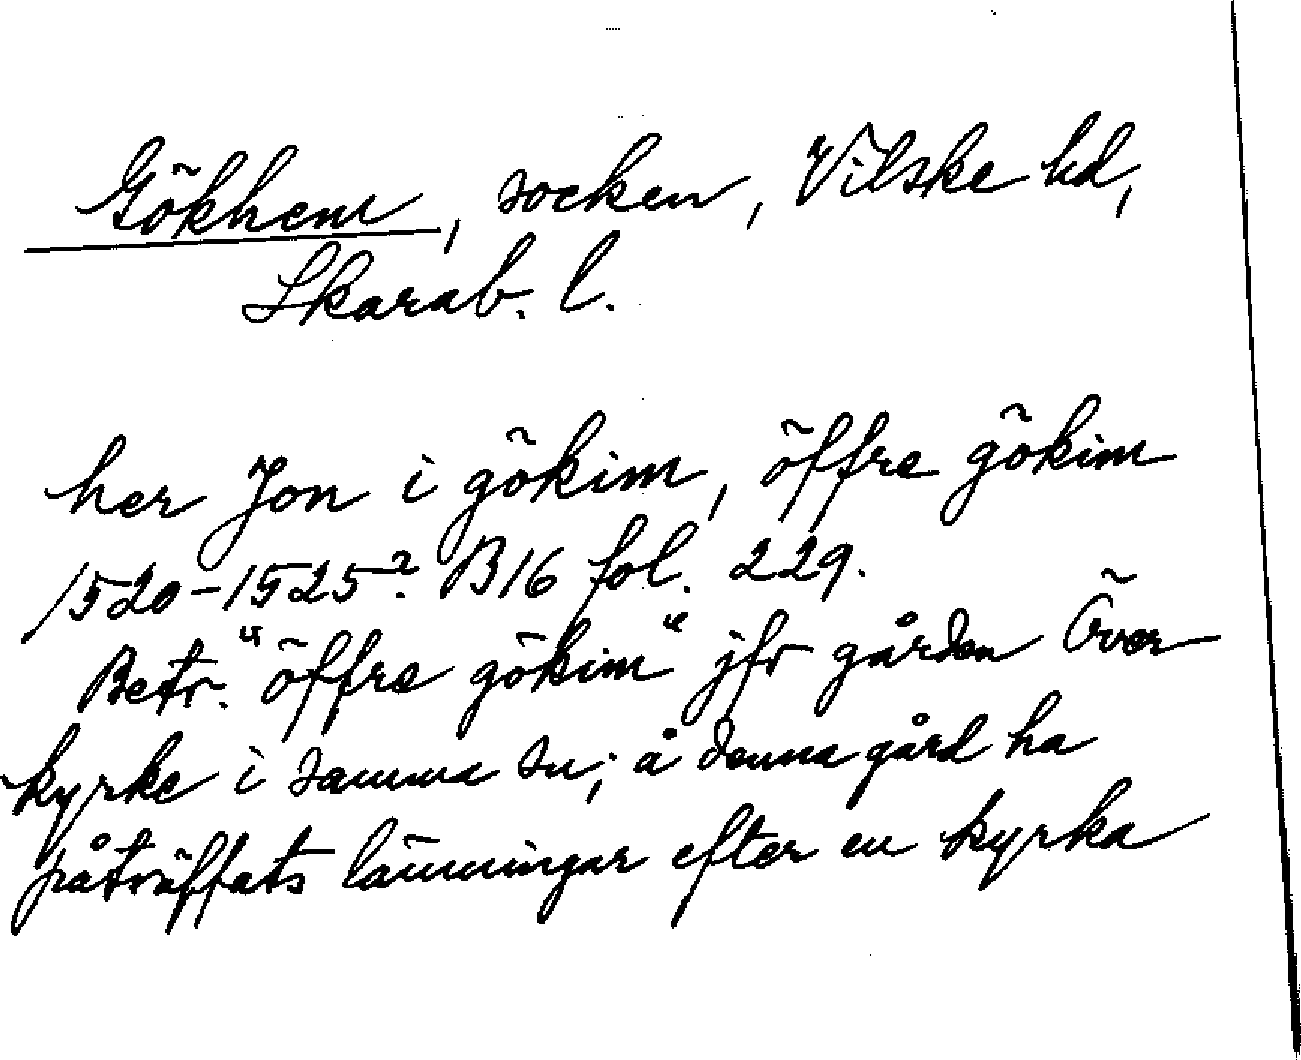 Gökhem, socken, Vilske hd,
Skarab. l.
her Jon i gökim, öffre gökim
1520-1525? B16 fol. 229.
Betr. "öffre gökim" jfr gården Över
kyrke i samma sn; å denna gård ha
påträffats lämningar efter en kyrka